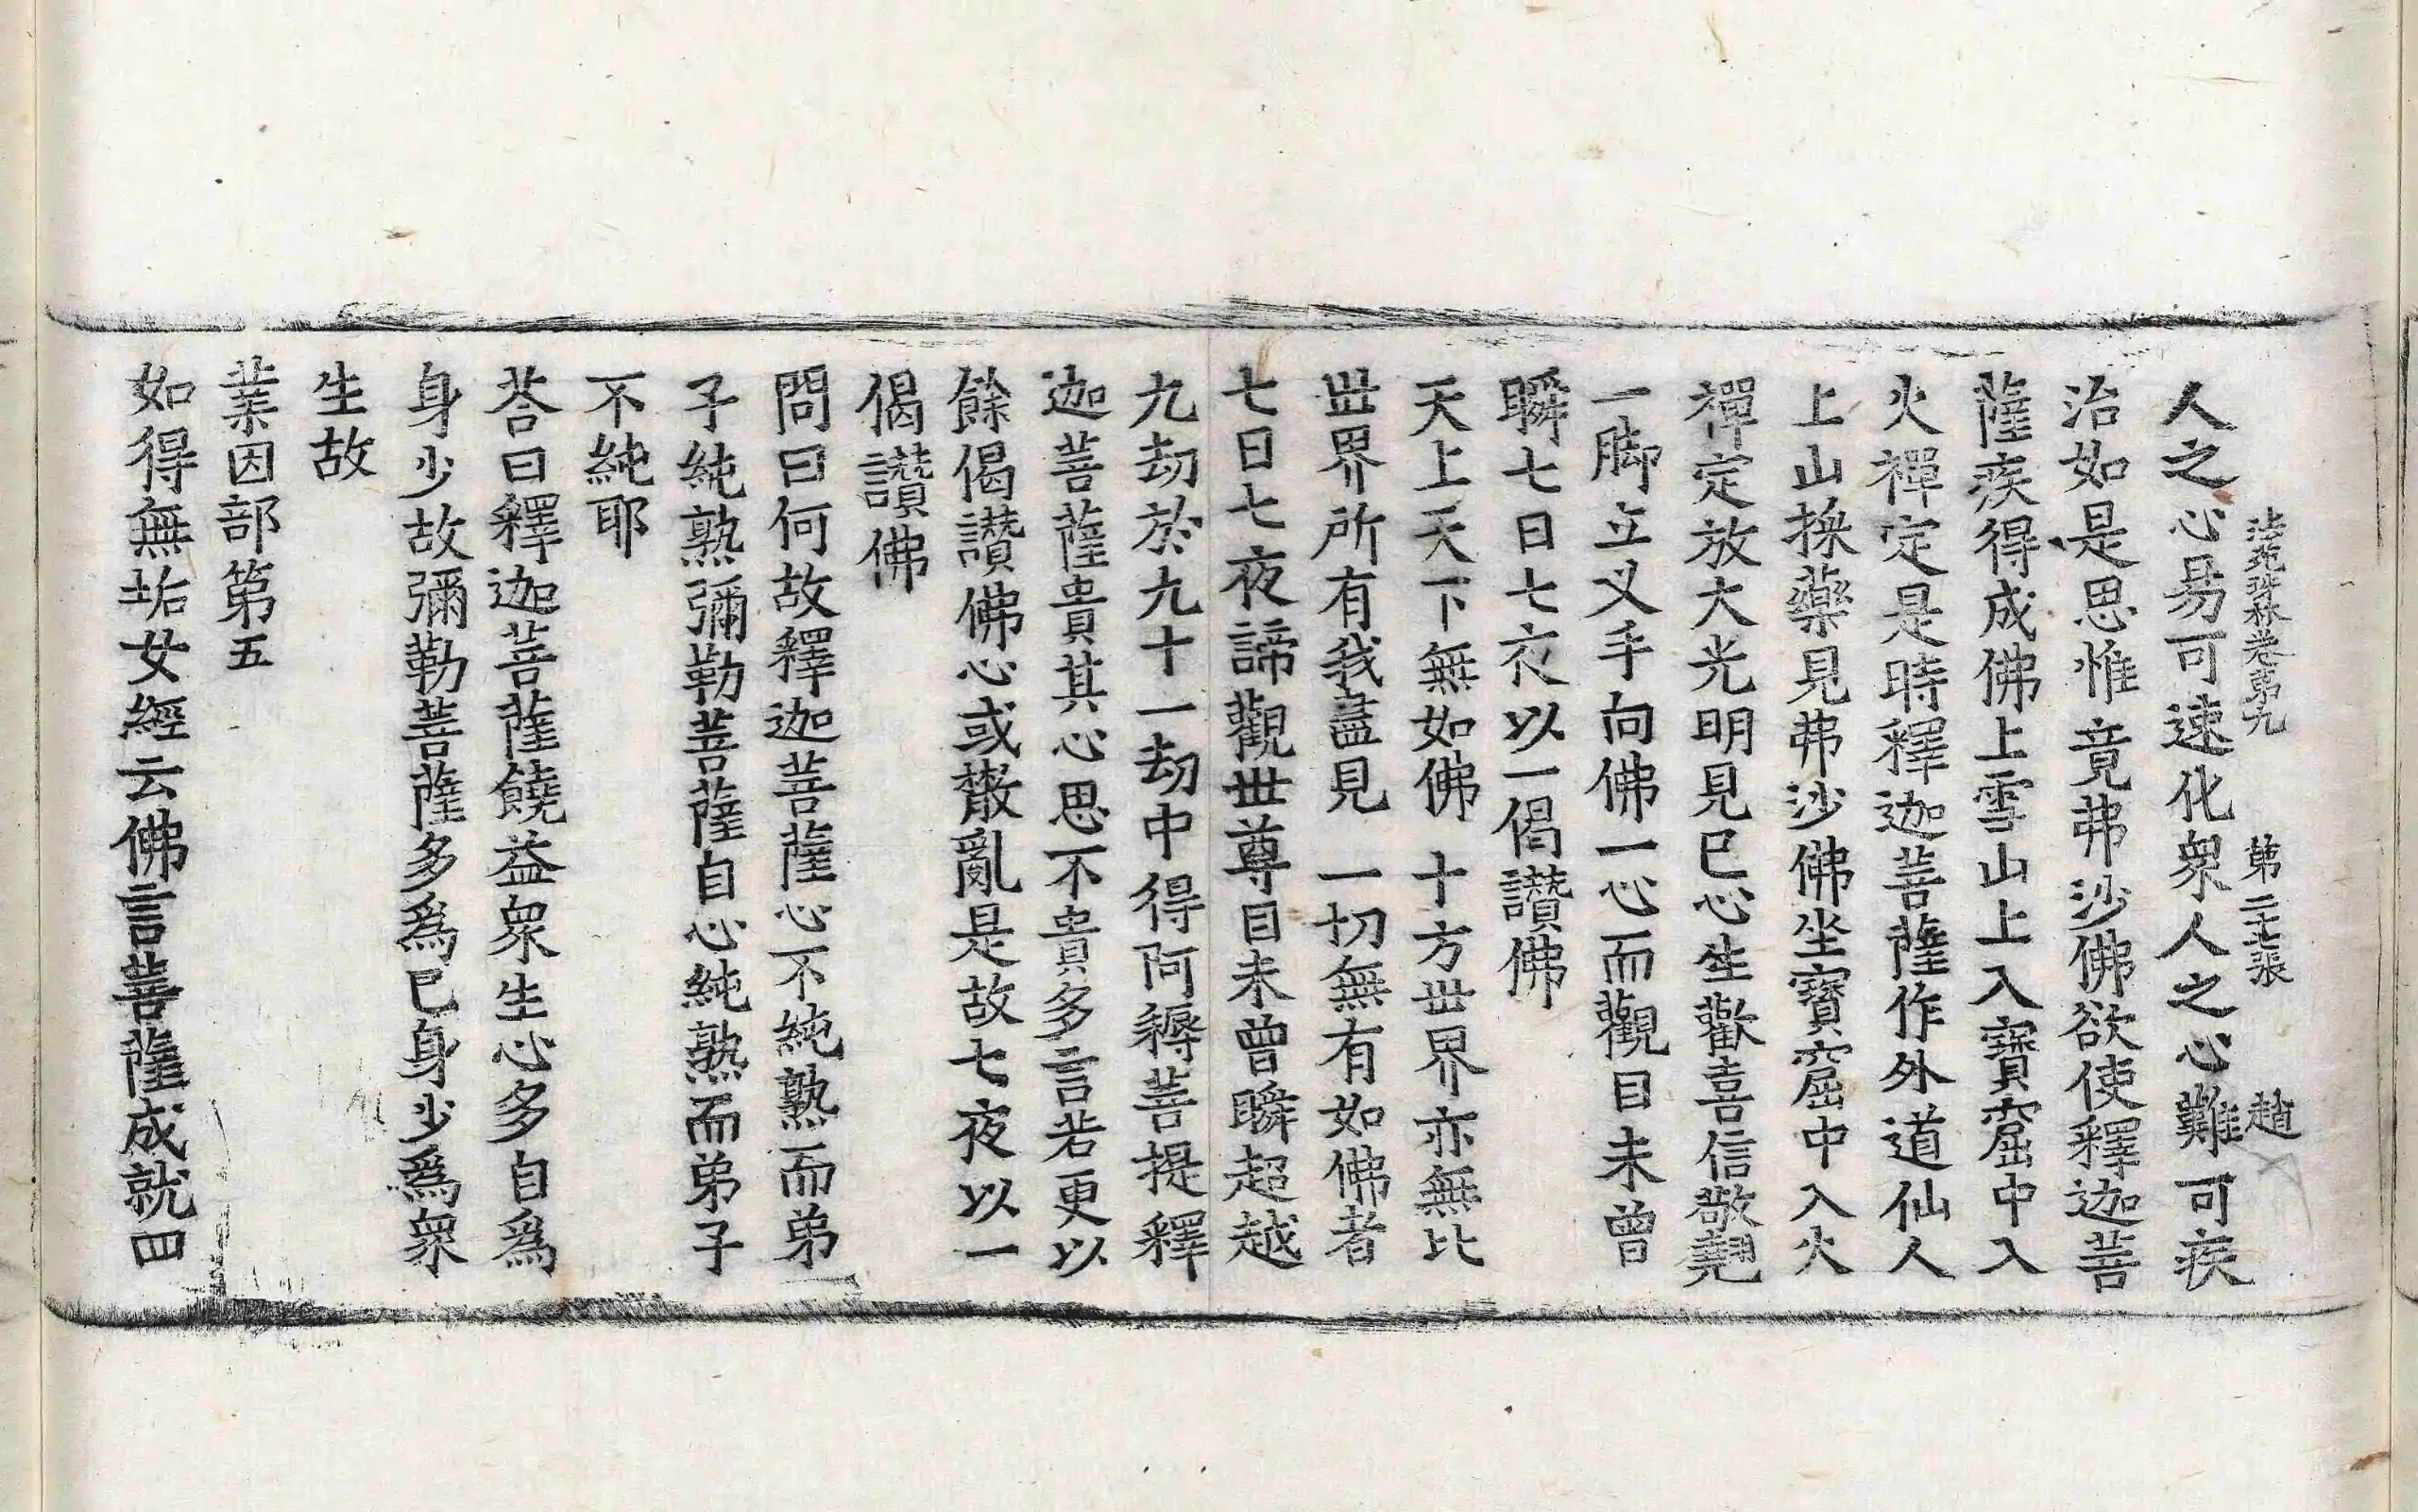 法苑珠林卷第九 第二十七張 趙
人之心易可速化衆人之心難可疾
治如是思惟竟弗沙佛欲使釋迦菩
薩疾得成佛上雪山上入寶窟中入
火禪定是時釋迦菩薩作外道仙人
上山採藥見弗沙佛坐寶窟中入火
禪定放大光明見已心生歡喜信敬翹
一脚立叉手向佛一心而觀目未曾
瞬七日七夜以一偈讚佛
天上天下無如佛 十方世界亦無比
世界所有我盡見 一切無有如佛者
七日七夜諦觀世尊目未曾瞬超越
九劫於九十一劫中得阿耨菩提釋
迦菩薩貴其心思不貴多言若更以
餘偈讚佛心或散亂是故七夜以一
偈讚佛
問曰何故釋迦菩薩心不純熟而弟
子純熟彌勒菩薩自心純熟而弟子
不純耶
荅曰釋迦菩薩饒益衆生心多自爲
身少故彌勒菩薩多爲已身少爲衆
生故
業因部第五
如得無垢女經云佛言菩薩成就四